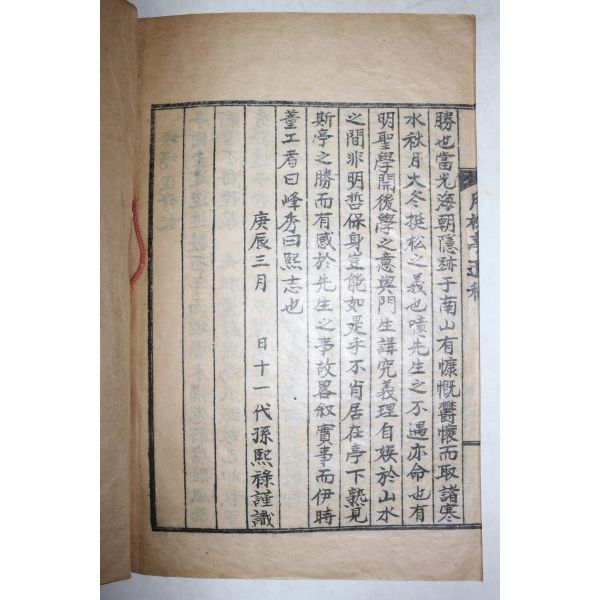 勝也當光海朝隱跡于南山有慷慨鬱懷而取諸寒
水秋月大冬挺松之義也噫先生之不遇亦命也有
明聖學開後學之意與門生講究義理自娛於山水
之間非明哲保身豈能如是乎不肖居在亭下熟見
斯亭之勝而有感於先生之事故畧叙實事而伊時
董工者曰峰秀曰熙志也
庚辰三月 日十一代孫熙祿謹識